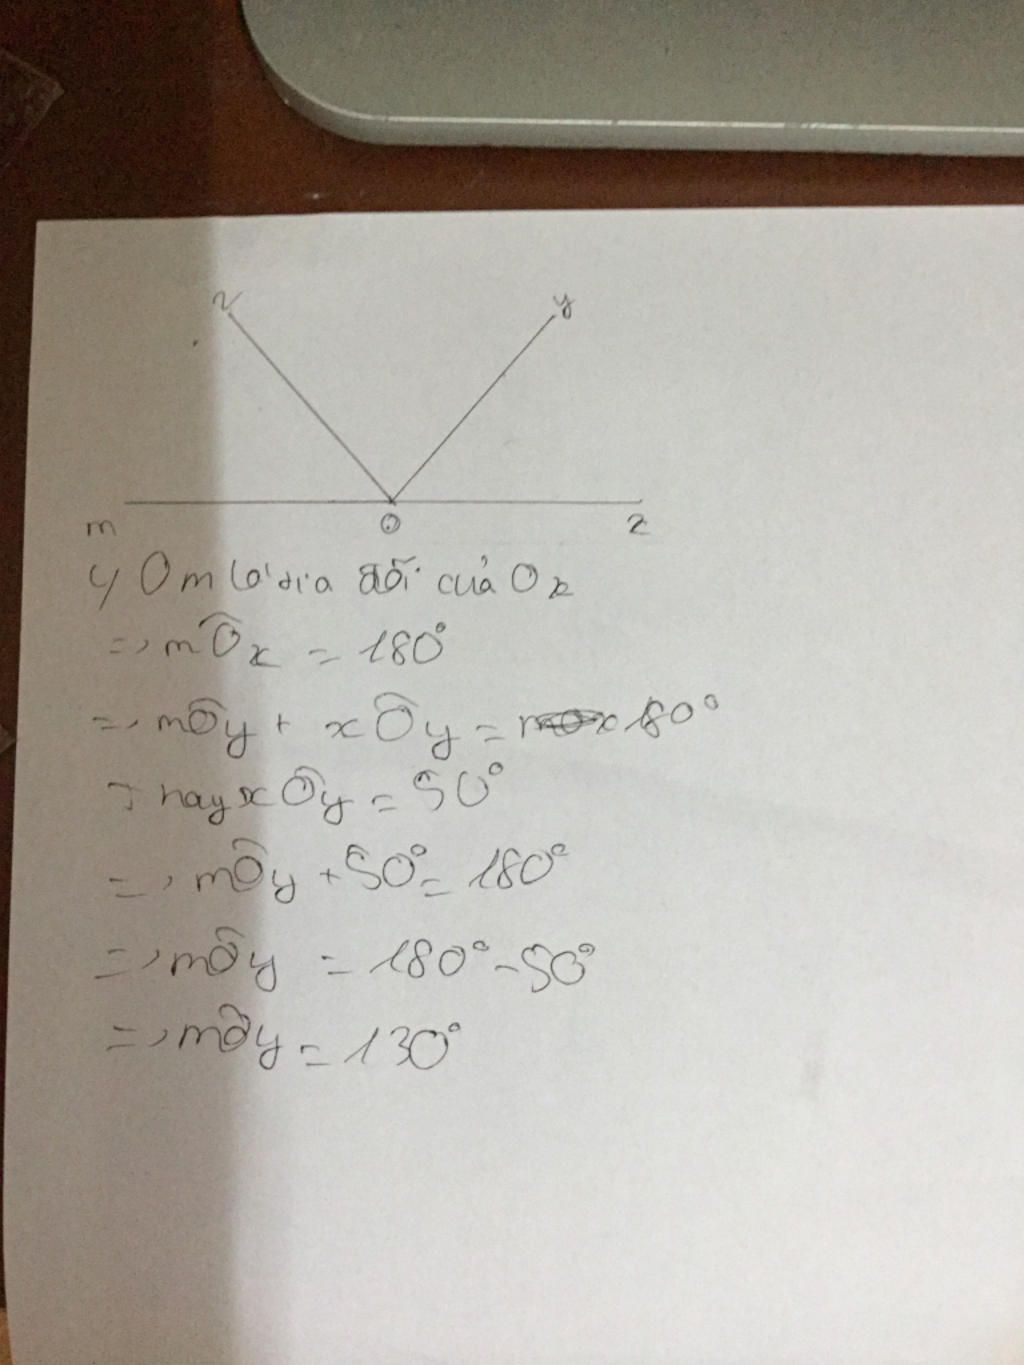 z y
m O x
c/ Om là tia đối của Ox
=> mÔx = 180°
=> mÔy + xÔy = 180°
T hay xÔy = 50°
=> mÔy + 50° = 180°
=> mÔy = 180° - 50°
=> mÔy = 130°